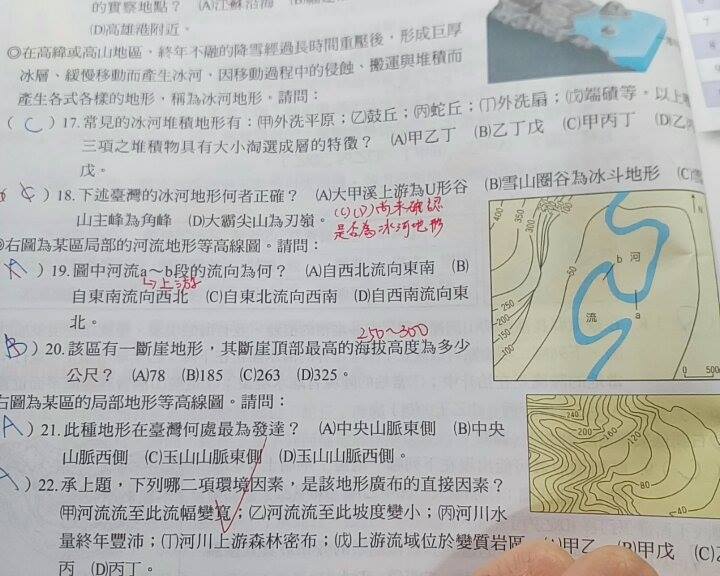 的實察地點？ (A)江蘇沿海 (B)
(D)高雄港附近。
◎在高緯或高山地區，終年不融的降雪經過長時間重壓後，形成巨厚
冰層、緩慢移動而產生冰河，因移動過程中的侵蝕、搬運與堆積而
產生各式各樣的地形，稱為冰河地形。請問：
( C ) 17. 常見的冰河堆積地形有：㈠甲外洗平原；乙鼓丘；丙蛇丘；丁外洗扇；戊端磧等。以上
三項之堆積物具有大小淘選成層的特徵？ (A)甲乙丁 (B)乙丁戊 (C)甲丙丁 (D)乙
戊。
) 18. 下述臺灣的冰河地形何者正確？ (A)大甲溪上游為U形谷 (B)雪山圈谷為冰斗地形 (C)
山主峰為角峰 (D)大霸尖山為刃嶺。
(C)(D)尚未確認
是否為冰河地形
右圖為某區局部的河流地形等高線圖。請問：
A ) 19. 圖中河流a～b段的流向為何？ (A)自西北流向東南 (B)
上游
自東南流向西北 (C)自東北流向西南 (D)自西南流向東
北。
250~300
B ) 20. 該區有一斷崖地形，其斷崖頂部最高的海拔高度為多少
公尺？ (A)78 (B)185 (C)263 (D)325。
右圖為某區的局部地形等高線圖。請問：
A ) 21. 此種地形在臺灣何處最為發達？ (A)中央山脈東側 (B)中央
山脈西側 (C)玉山山脈東側 (D)玉山山脈西側。
) 22. 承上題，下列哪二項環境因素，是該地形廣布的直接因素？
甲河流流至此流幅變寬；乙河流流至此坡度變小；丙河川水
量終年豐沛；丁河川上游森林密布；戊上游流域位於變質岩區
(A)甲乙 (B)甲戊 (C)乙
丙 (D)丙丁。
400
350
300
N
50
b
河
流
a
250
200
150
100
0 500
240
200
160
120
80
40